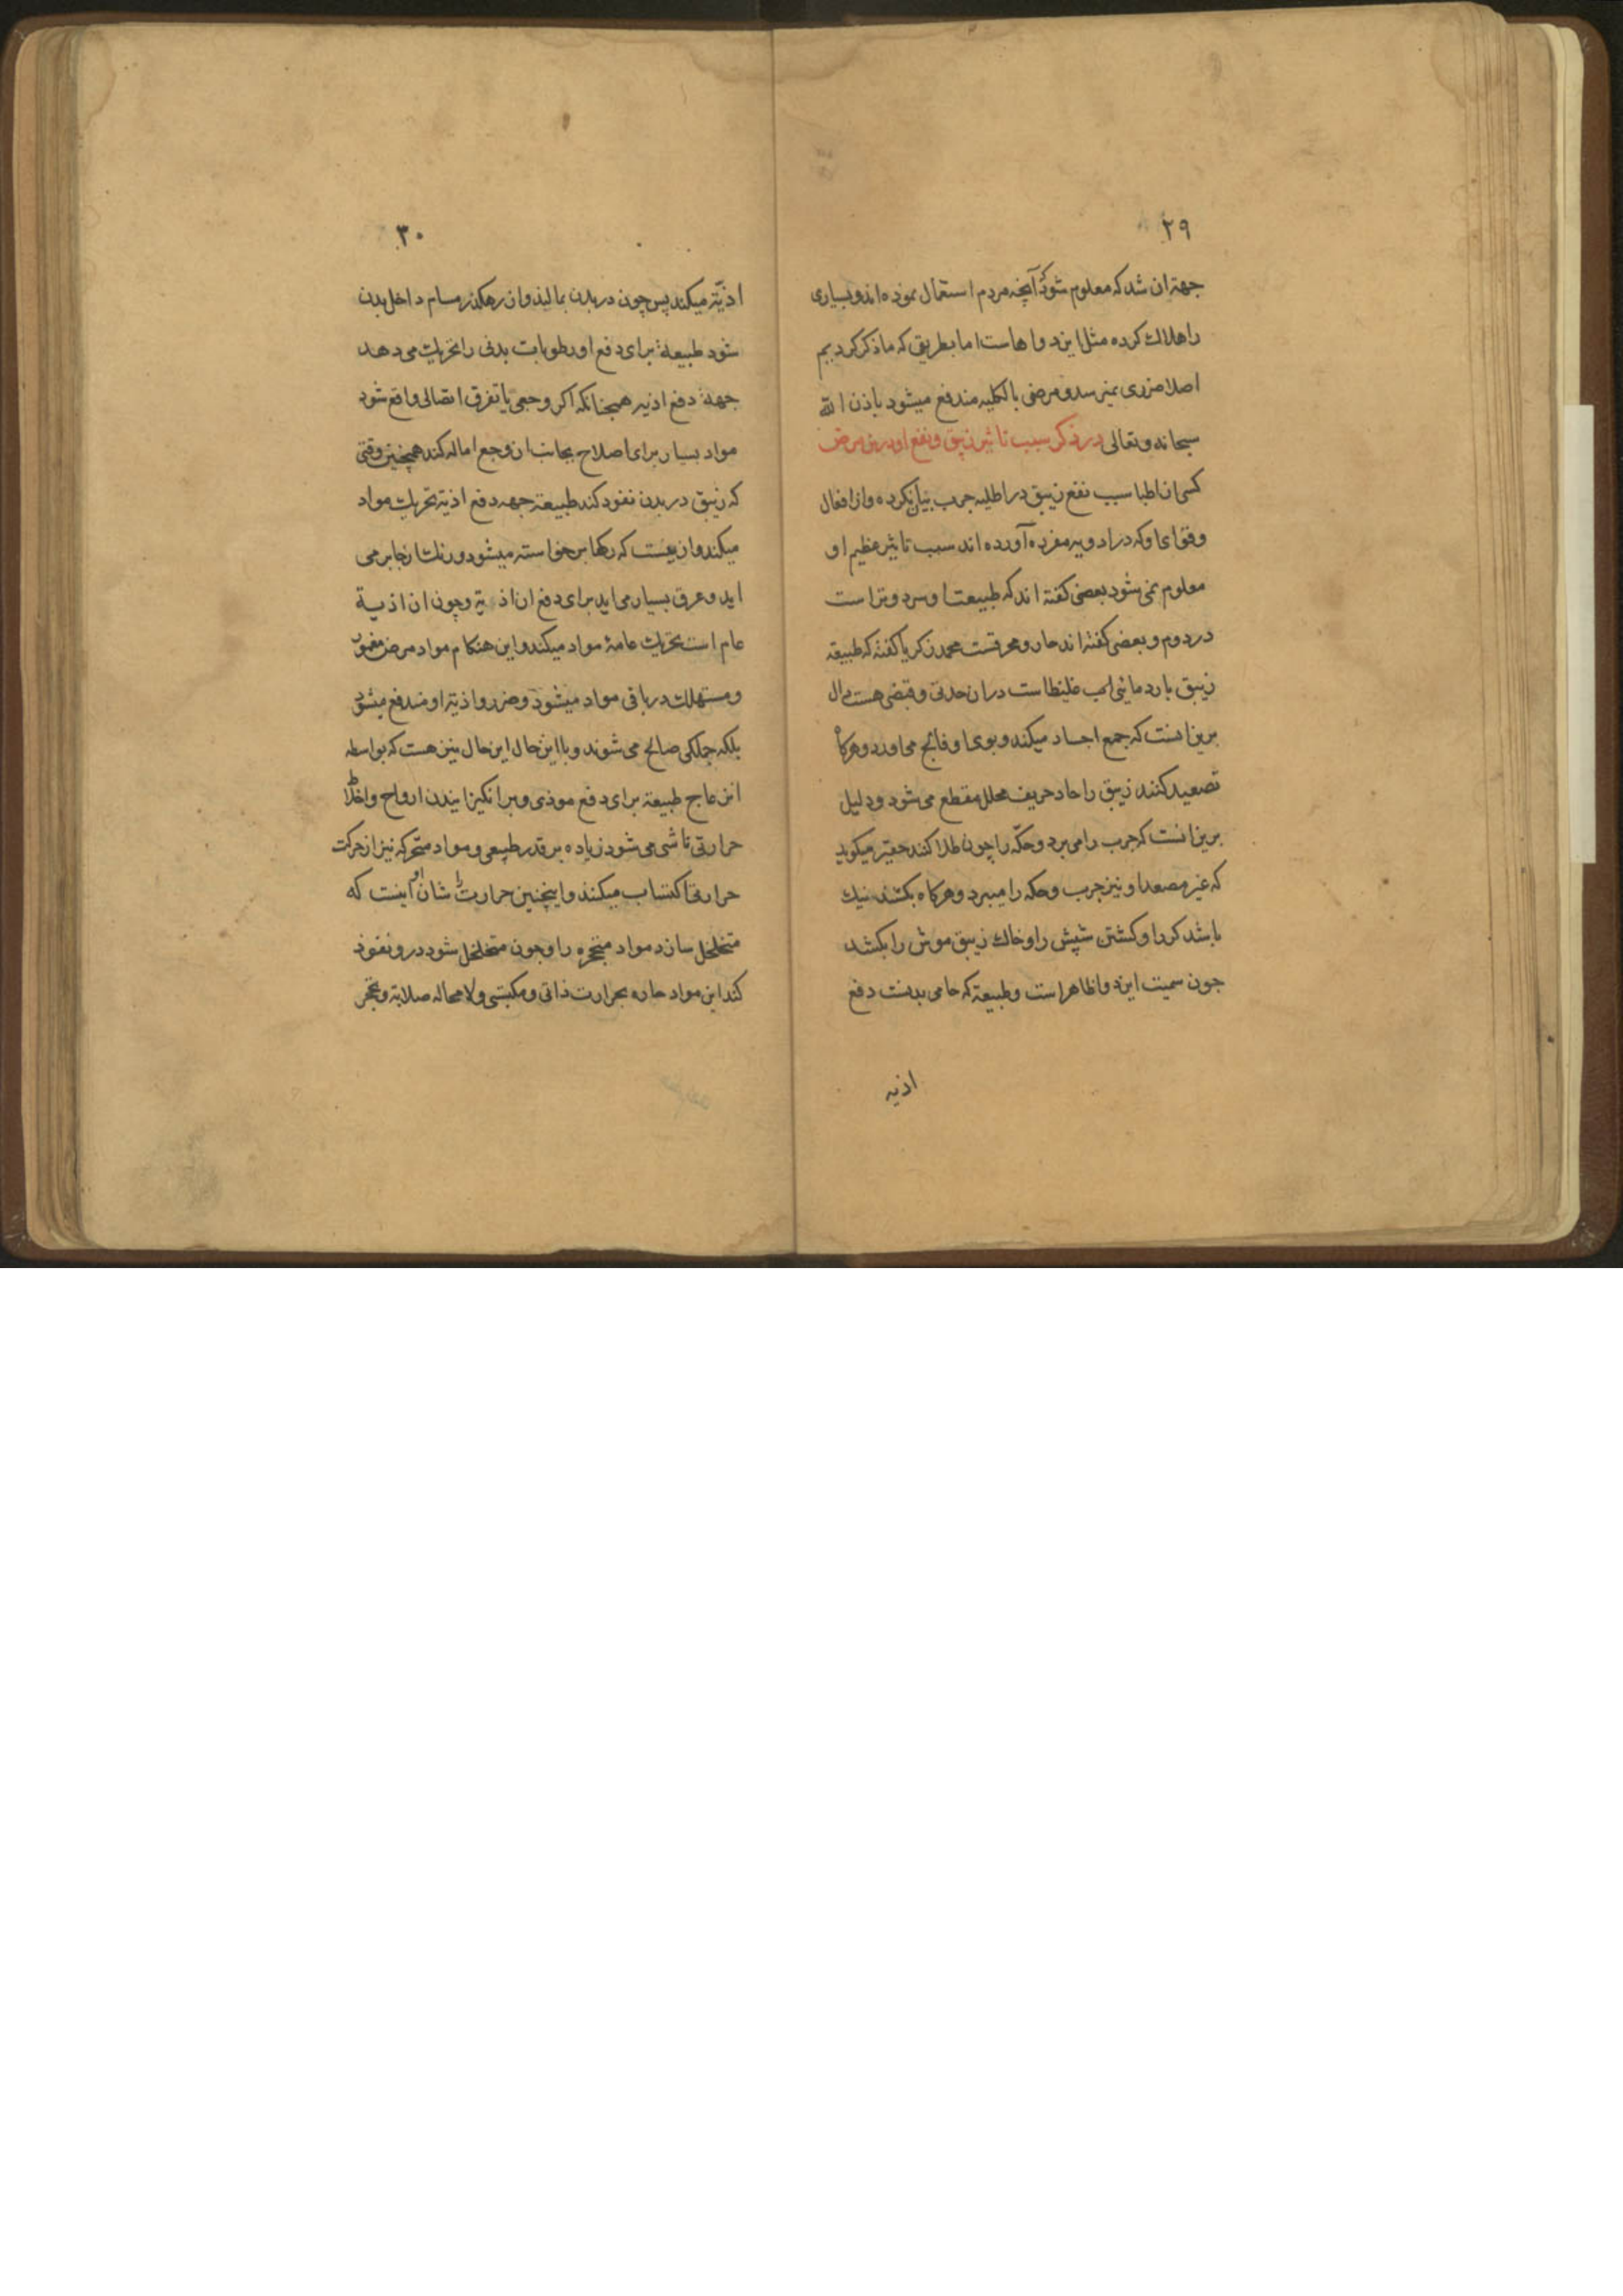 ۲۹
جهة ان شد که معلوم شود که آنچه مردم استعمال نموده اند و بسیاری
را هلاك کرده مثل این دواهاست اما بطریقی که ما ذکر کردیم
اصلا ضرری نمیرسد و مرض بالکلیه مندفع میشود باذن الله
سبحانه و تعالی در ذکر سبب تاثیر زیبق و نفع او درین مرض
کسی از اطبا سبب نفع زیبق در اطلیه جرب بیان نکرده و از افعال
وقوای او که در ادویه مفرده آورده اند سبب تاثیر عظیم او
معلوم نمی شود بعضی کفته اند که طبیعت او سرد و تر است
در دوم و بعضی کفته اند حار و محرقست محمد زکریا کفته که طبیعة
زیبق بارد مائی لب غلیظ است در ان حدتی و قبضی هست دال
برین انست که جمع اجساد میکند و بوی او فالج می اورد و هرکاه
تصعید کنند زیبق را حاد حریف محلل مقطع می شود و دلیل
برین انست که جرب را می برد و حکّه را چون طلا کنند حقیر میکوید
که غیر مصعد او نیز جرب و حکه را میبرد و هرکاه بکشند نیك
باشد کردا و کشتن شپش را و خاك زیبق موش را بکشد
جون سمیت این دوا ظاهر است و طبیعة که حامی بدنست دفع
اذیه
۳۰
اذیّة میکند پس چون در بدن بمالند و از رهکذر مسام داخل بدن
شود طبیعة برای دفع او رطوبات بدنی را تحریك می دهد
جهة دفع اذیه همچنانکه اکر وجعی یا تفرق اتصالی واقع شود
مواد بسیار برای اصلاح بجانب ان وجع اماله کند همچنین وقتی
که زیبق در بدن نفوذ کند طبیعة جهه دفع اذیة تحریك مواد
میکند و ازینست که رکها برخواسته میشود و رنك از جا بر می
اید و عرق بسیار می اید برای دفع ان اذیة و چون ان اذیة
عام است تحریك عامهٔ مواد میکند و این هنکام مواد مرض مغمور
و مستهلك در باقی مواد میشود و ضرر و اذیة او مندفع میشود
بلکه جملکی صالح می شوند و با این حال این حال نیز هست که بواسطه
انزعاج طبیعة برای دفع موذی و برانکیزانیدن ارواح و اخلاط
حرارتی ناشی می شود زیاده بر قدر طبیعی و مواد متحرکه نیز از حرکت
حرارتی اکتساب میکنند و اینچنین حرارت را شان او اینست که
متخلخل سازد مواد متحجره را و جون متخلخل شود درو نفوذ
کند این مواد حاره بحرارت ذاتی و مکتسبی و لا محاله صلابة و تحجر